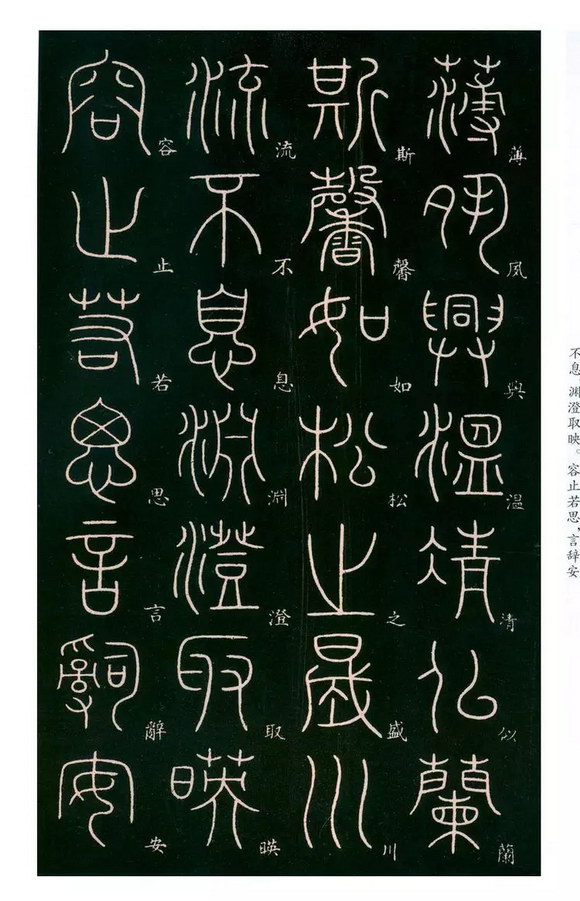 薄夙興温清似蘭
斯馨如松之盛川
流不息淵澄取暎
容止若思言辭安
不息 渊澄取映。容止若思，言辞安